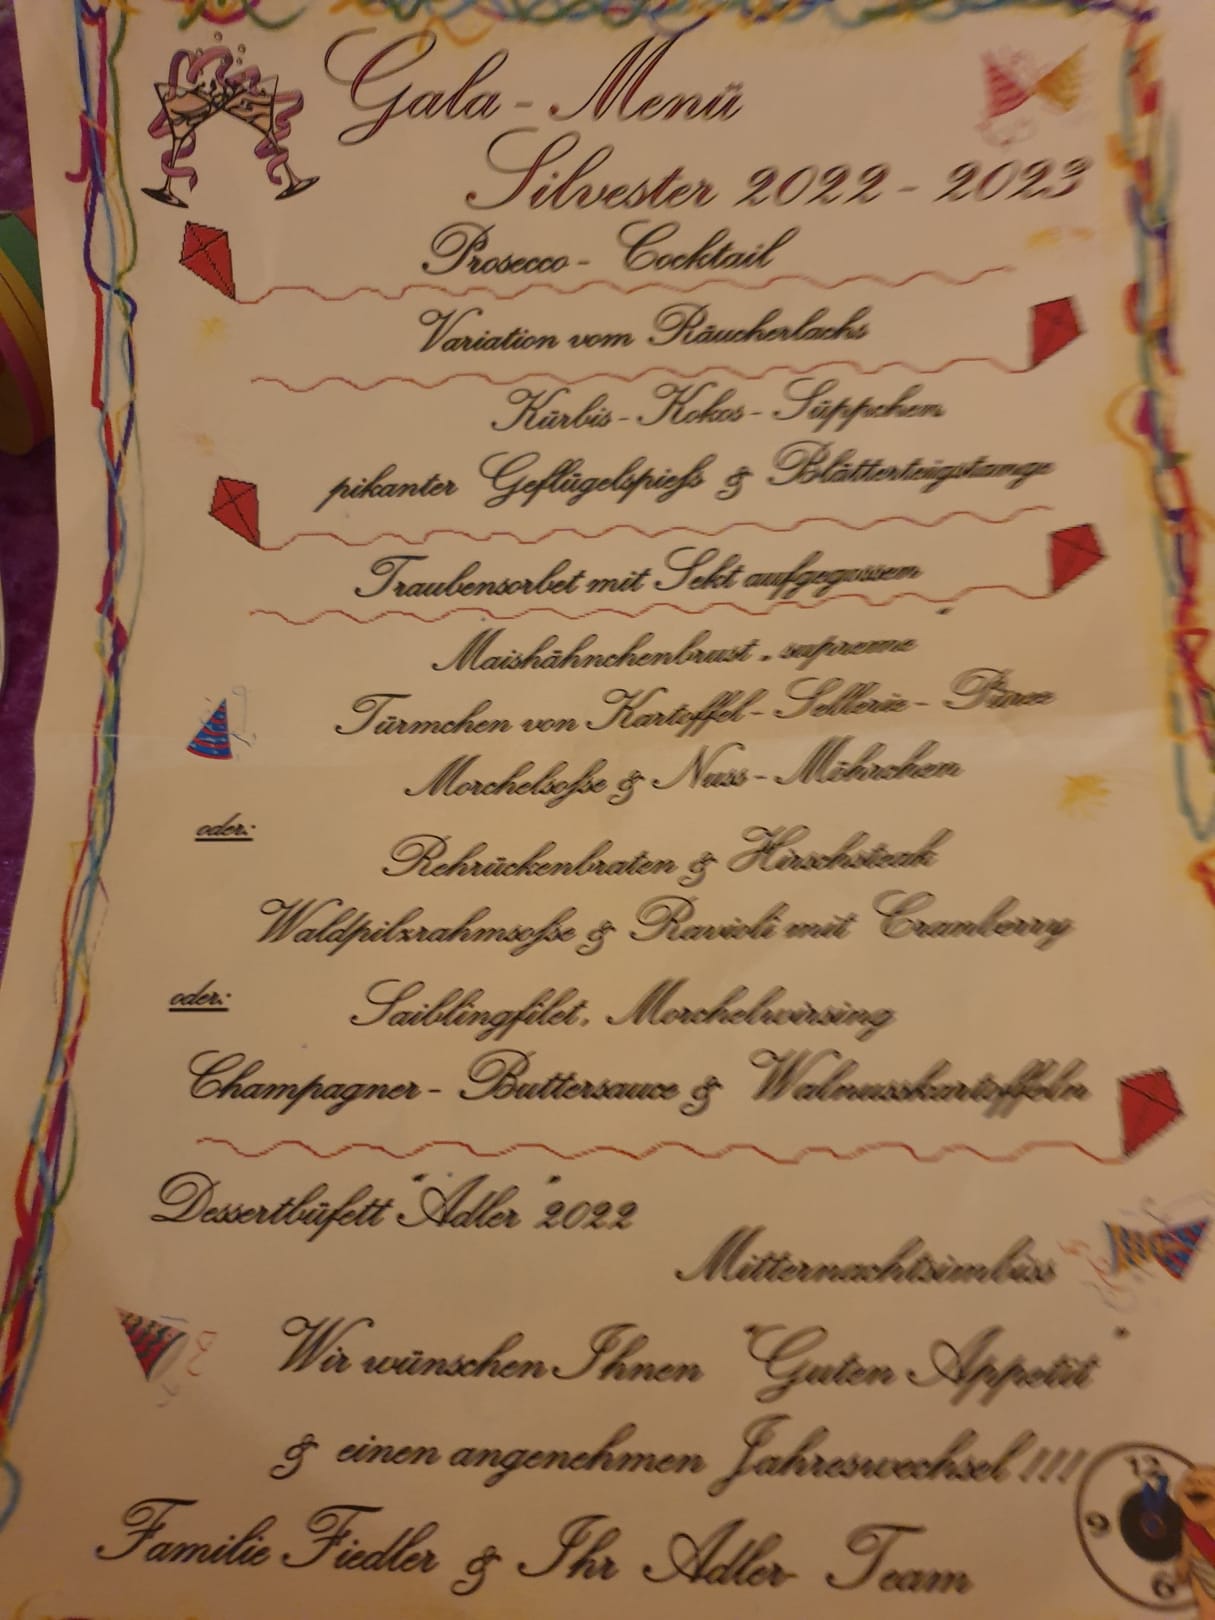 Gala - Menü
Silvester 2022 - 2023
Prosecco - Cocktail
Variation vom Räucherlachs
Kürbis - Kokos - Süppchen
pikanter Geflügelspieß & Blätterteigstange
Traubensorbet mit Sekt aufgegossen
Maishähnchenbrust „ supreme "
Türmchen von Kartoffel - Sellerie - Püree
Morchelsoße & Nuss - Möhrchen
oder:
Rehrückenbraten & Hirschsteak
Waldpilzrahmsoße & Ravioli mit Cranberry
oder:
Saiblingfilet, Morchelwirsing
Champagner - Buttersauce & Walnusskartoffeln
Dessertbüfett "Adler" 2022
Mitternachtsimbiss
Wir wünschen Ihnen "Guten Appetit"
& einen angenehmen Jahreswechsel !!!
12
9
6
Familie Fiedler & Ihr Adler- Team